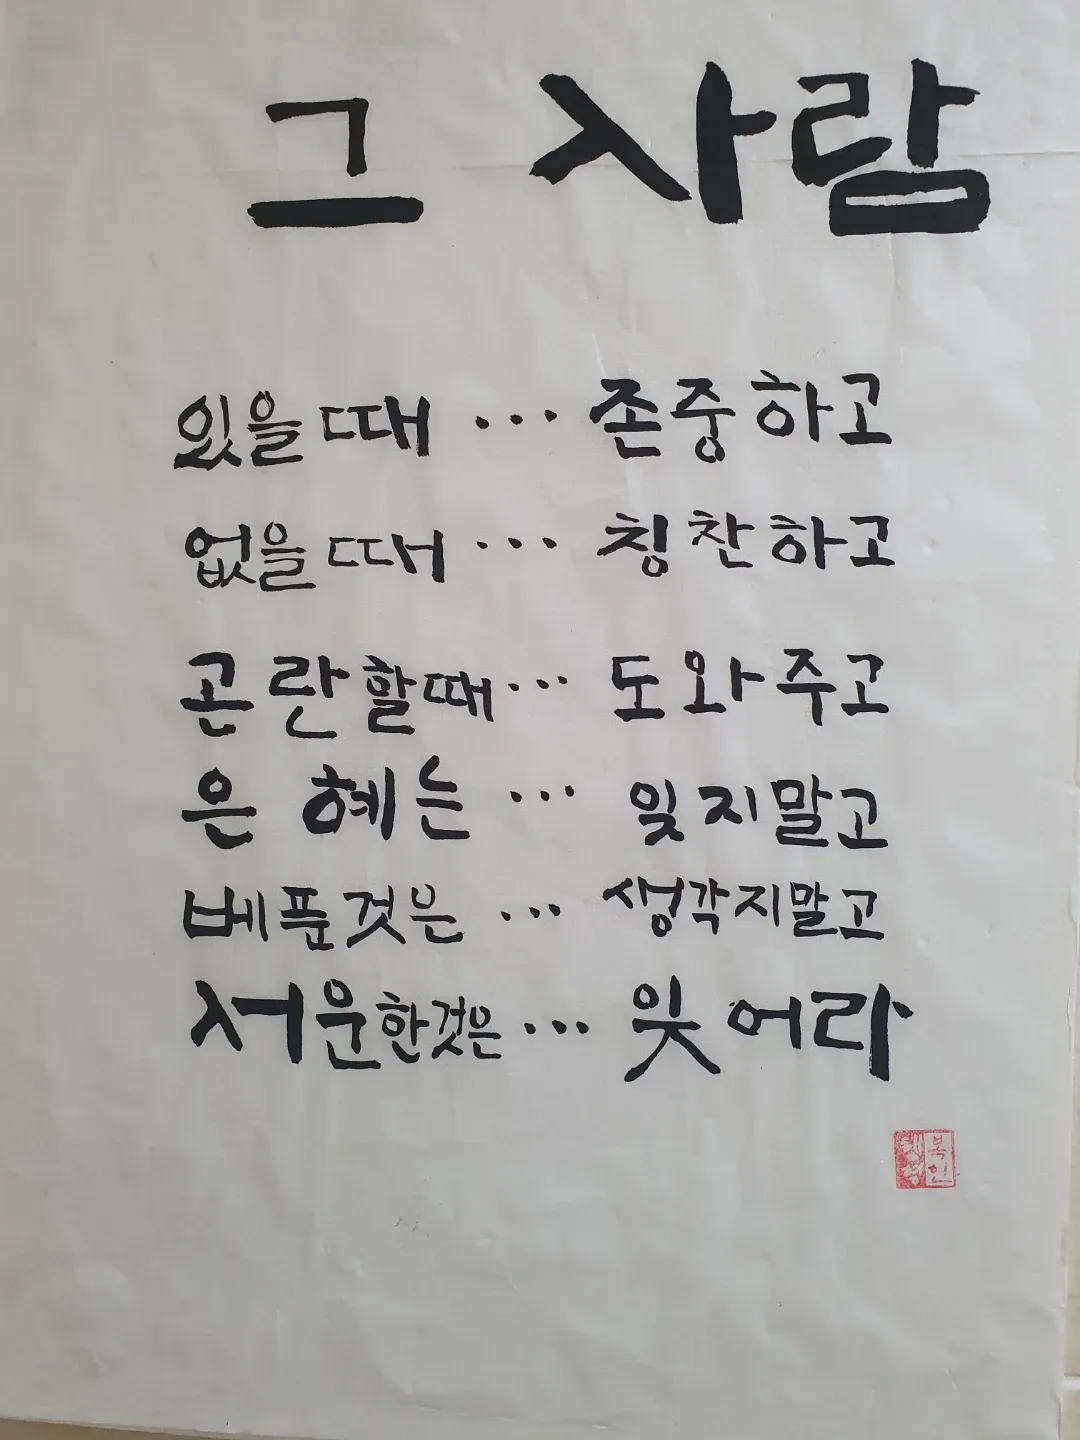 그 사람
있을때 ... 존중하고
없을때 ... 칭찬하고
곤란할때 ... 도와주고
은혜는 ... 잊지말고
베푼것은 ... 생각지말고
서운한것은 ... 잊어라